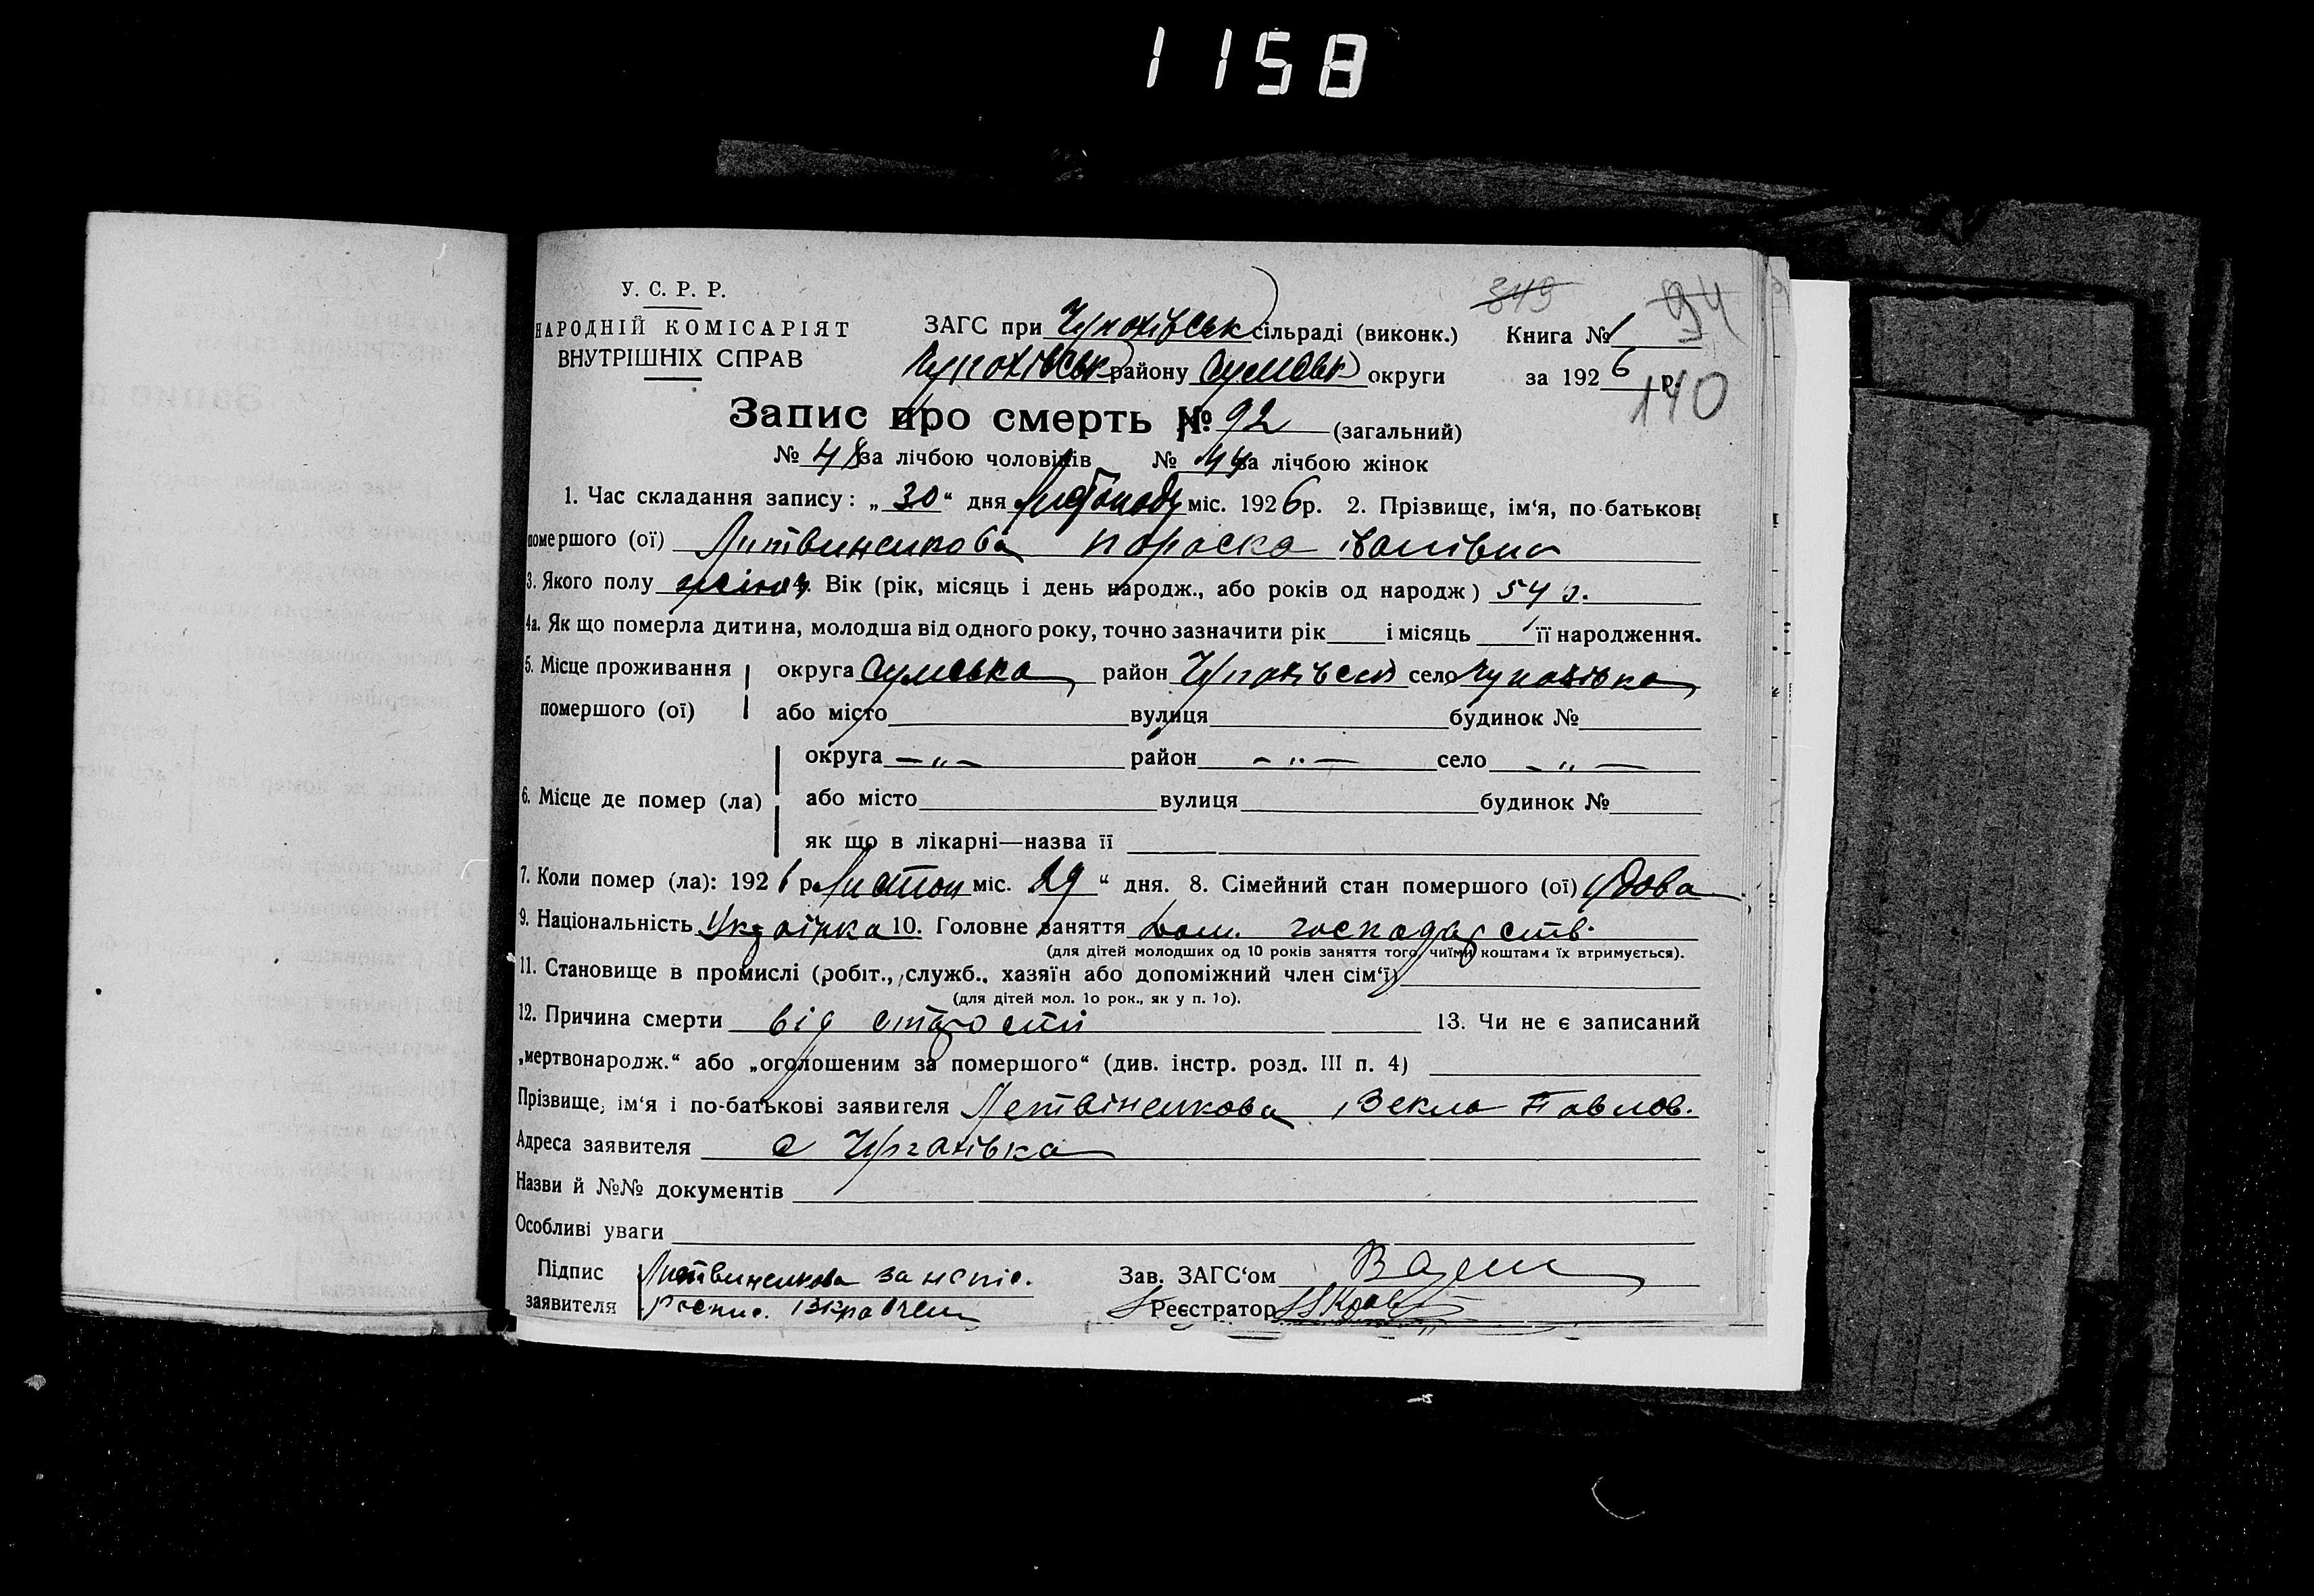 1158
349 94
У. С. Р. Р.
НАРОДНІЙ КОМІСАРІЯТ
ВНУТРІШНІХ СПРАВ
ЗАГС при сільраді (виконк.) Книга № 1
району Сумськ округи за 1926 р.
140
Запис про смерть № 92 (загальний)
№ 48 за лічбою чоловіків № 44 за лічбою жінок
1. Час складання запису: „30“ дня Листопаду міс. 1926 р. 2. Прізвище, ім‘я, по-батькові
помершого (ої) Литвиненкова Пораска Іванівна
3. Якого полу жіноч. Вік (рік, місяць і день народж., або років од народж) 54 р.
4а. Як що померла дитина, молодша від одного року, точно зазначити рік і місяць її народження.
5. Місце проживання округа Сумська район село
помершого (ої) або місто вулиця будинок №
округа — „ — район — „ — село — „ —
6. Місце де помер (ла) або місто вулиця будинок №
як що в лікарні—назва її
7. Коли помер (ла): 1926 р. Листоп міс. 29 “ дня. 8. Сімейний стан помершого (ої) удова
9. Національність Українка 10. Головне заняття дом. господарств.
(для дітей молодших од 10 років заняття того, чиїми коштами їх втримується).
11. Становище в промислі (робіт., служб., хазяїн або допоміжний член сім‘ї)
(для дітей мол. 1о рок., як у п. 1о).
12. Причина смерти від старости 13. Чи не є записаний
„мертвонародж.“ або „оголошеним за помершого“ (див. інстр. розд. III п. 4)
Прізвище, ім‘я і по-батькові заявителя Летвіненкова Векла Павлов.
Адреса заявителя с
Назви й №№ документів
Особливі уваги
Підпис Литвиненкова за непис. Зав. ЗАГС‘ом
заявителя роспис. Реєстратор